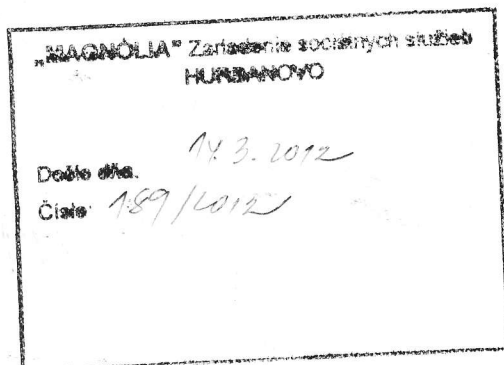 „MAGNÓLIA" Zariadenie sociálnych služieb
HURBANOVO
Došlo dňa.
3. 2012
Číslo: 189/2012